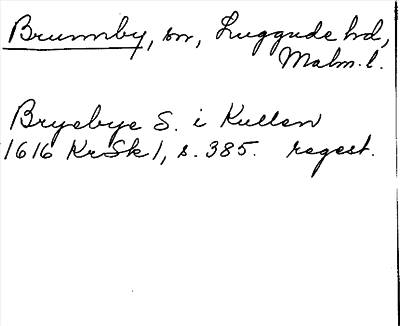 Brunnby, sn, Luggude hd,
Malm. l.
Bryebye S. i Kullen
1616 KrSk 1, s. 385. regest.